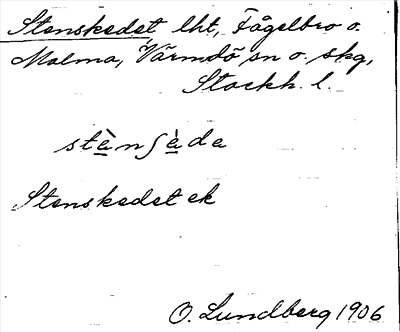 Stenskedet lht, Fågelbro o.
Malma, Värmdö sn o. skg,
Stockh. l.
stè̠nʃè̠de
Stenskedet ek
O. Lundberg 1906